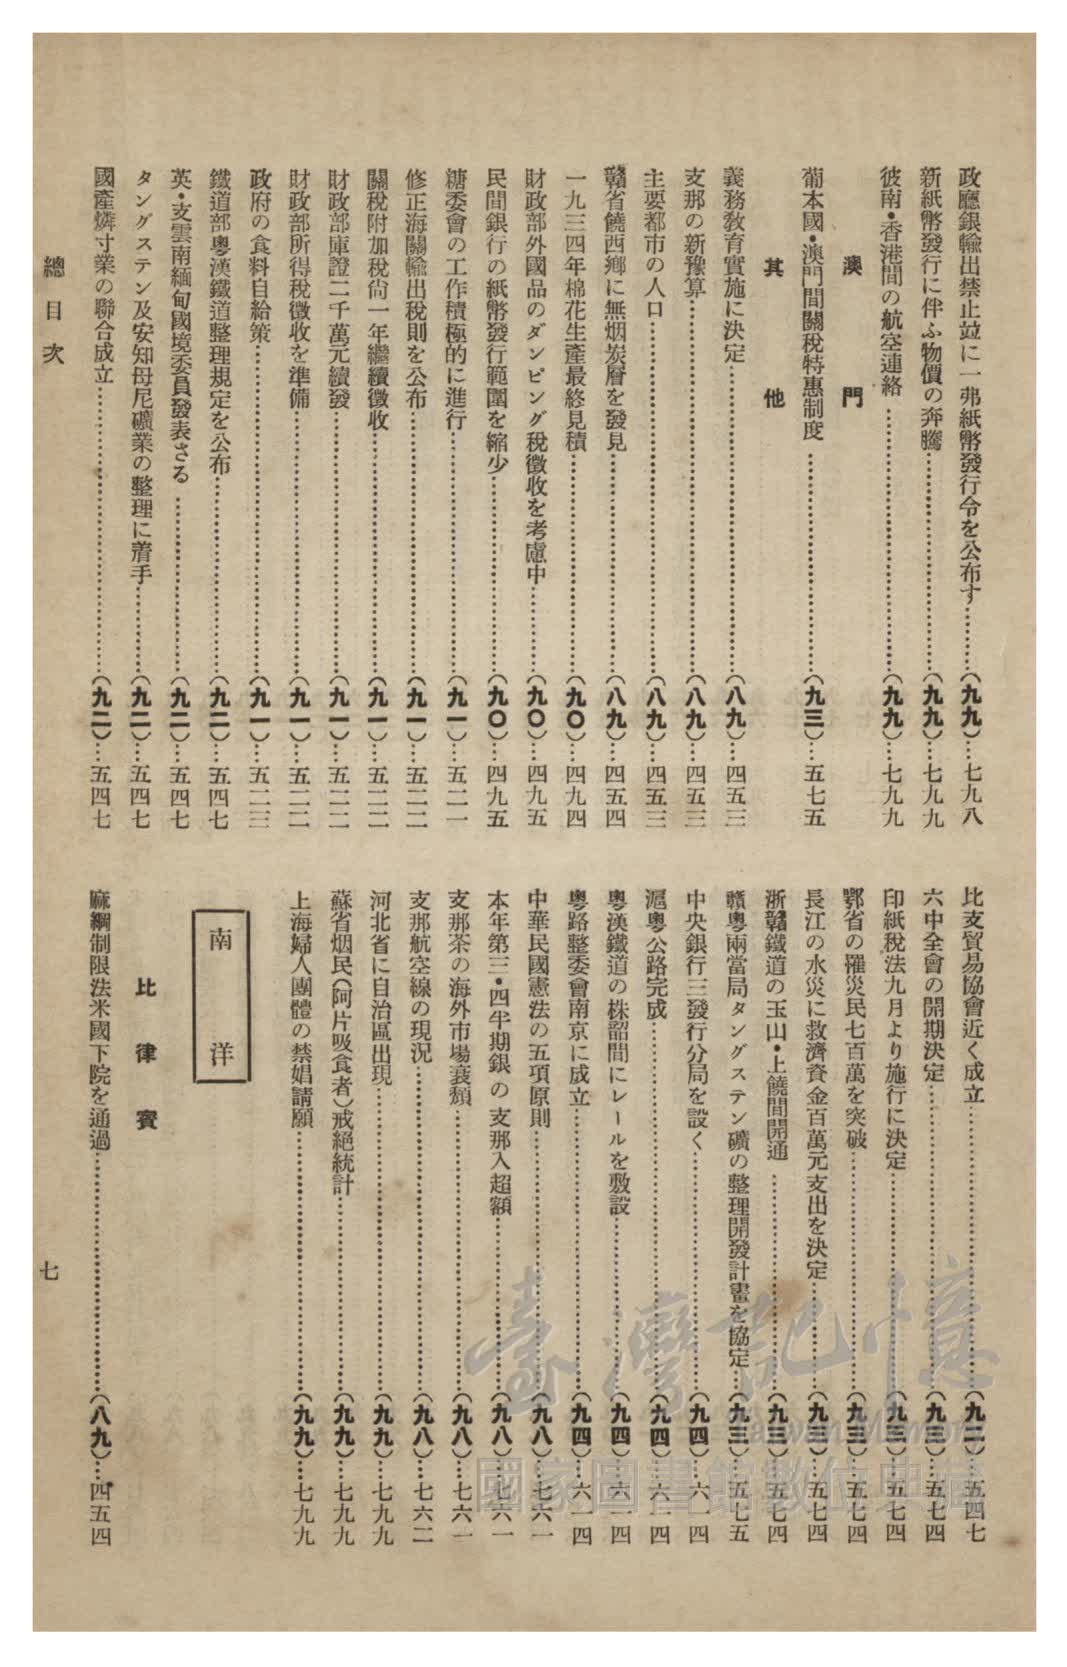 政廳銀輸出禁止竝に一弗紙幣發行令を公布す…………(九九)…七九八
新紙幣發行に伴ふ物價の奔騰…………(九九)…七九九
彼南•香港間の航空連絡…………(九九)…七九九
澳門
葡本國•澳門間關稅特惠制度…………(九三)…五七五
其他
義務敎育實施に決定…………(八九)…四五三
支那の新豫算…………(八九)…四五三
主要都市の人口…………(八九)…四五三
贛省饒西鄉に無烟炭層を發見…………(八九)…四五四
一九三四年棉花生產最終見積…………(九〇)…四九四
財政部外國品のダンピング稅徵收を考慮中…………(九〇)…四九五
民間銀行の紙幣發行範圍を縮少…………(九〇)…四九五
糖委會の工作積極的に進行…………(九一)…五二一
修正海關輸出稅則を公布…………(九一)…五二二
關稅附加稅尙一年繼續徵收…………(九一)…五二二
財政部庫證二千萬元續發…………(九一)…五二二
財政部所得稅徵收を準備…………(九一)…五二二
政府の食料自給策…………(九一)…五二三
鐵道部粵漢鐵道整理規定を公布…………(九二)…五四七
英•支雲南緬甸國境委員發表さる…………(九二)…五四七
タングステン及安知母尼礦業の整理に着手…………(九二)…五四七
國產燐寸業の聯合成立…………(九二)…五四七
比支貿易協會近く成立…………(九二)…五四七
六中全會の開期決定…………(九三)…五七四
印紙稅法九月より施行に決定…………(九三)…五七四
鄂省の罹災民七百萬を突破…………(九三)…五七四
長江の水災に救濟資金百萬元支出を決定…………(九三)…五七四
浙贛鐵道の玉山•上饒間開通…………(九三)…五七四
贛粵兩當局タングステン礦の整理開發計畫を協定…………(九三)…五七五
中央銀行三發行分局を設く…………(九四)…六一四
滬粵公路完成…………(九四)…六一四
粵漢鐵道の株韶間にレールを敷設…………(九四)…六一四
粵路整委會南京に成立…………(九四)…六一四
中華民國憲法の五項原則…………(九八)…七六一
本年第三•四半期銀の支那入超額…………(九八)…七六一
支那茶の海外市場衰頽…………(九八)…七六一
支那航空線の現況…………(九八)…七六二
河北省に自治區出現…………(九九)…七九九
蘇省烟民(阿片吸食者)戒絕統計…………(九九)…七九九
上海婦人團體の禁娼請願…………(九九)…七九九
南洋
比律賓
麻綱制限法米國下院を通過…………(八九)…四五四
總目次
七
臺灣記憶
Taiwan Memory
國家圖書館數位典藏